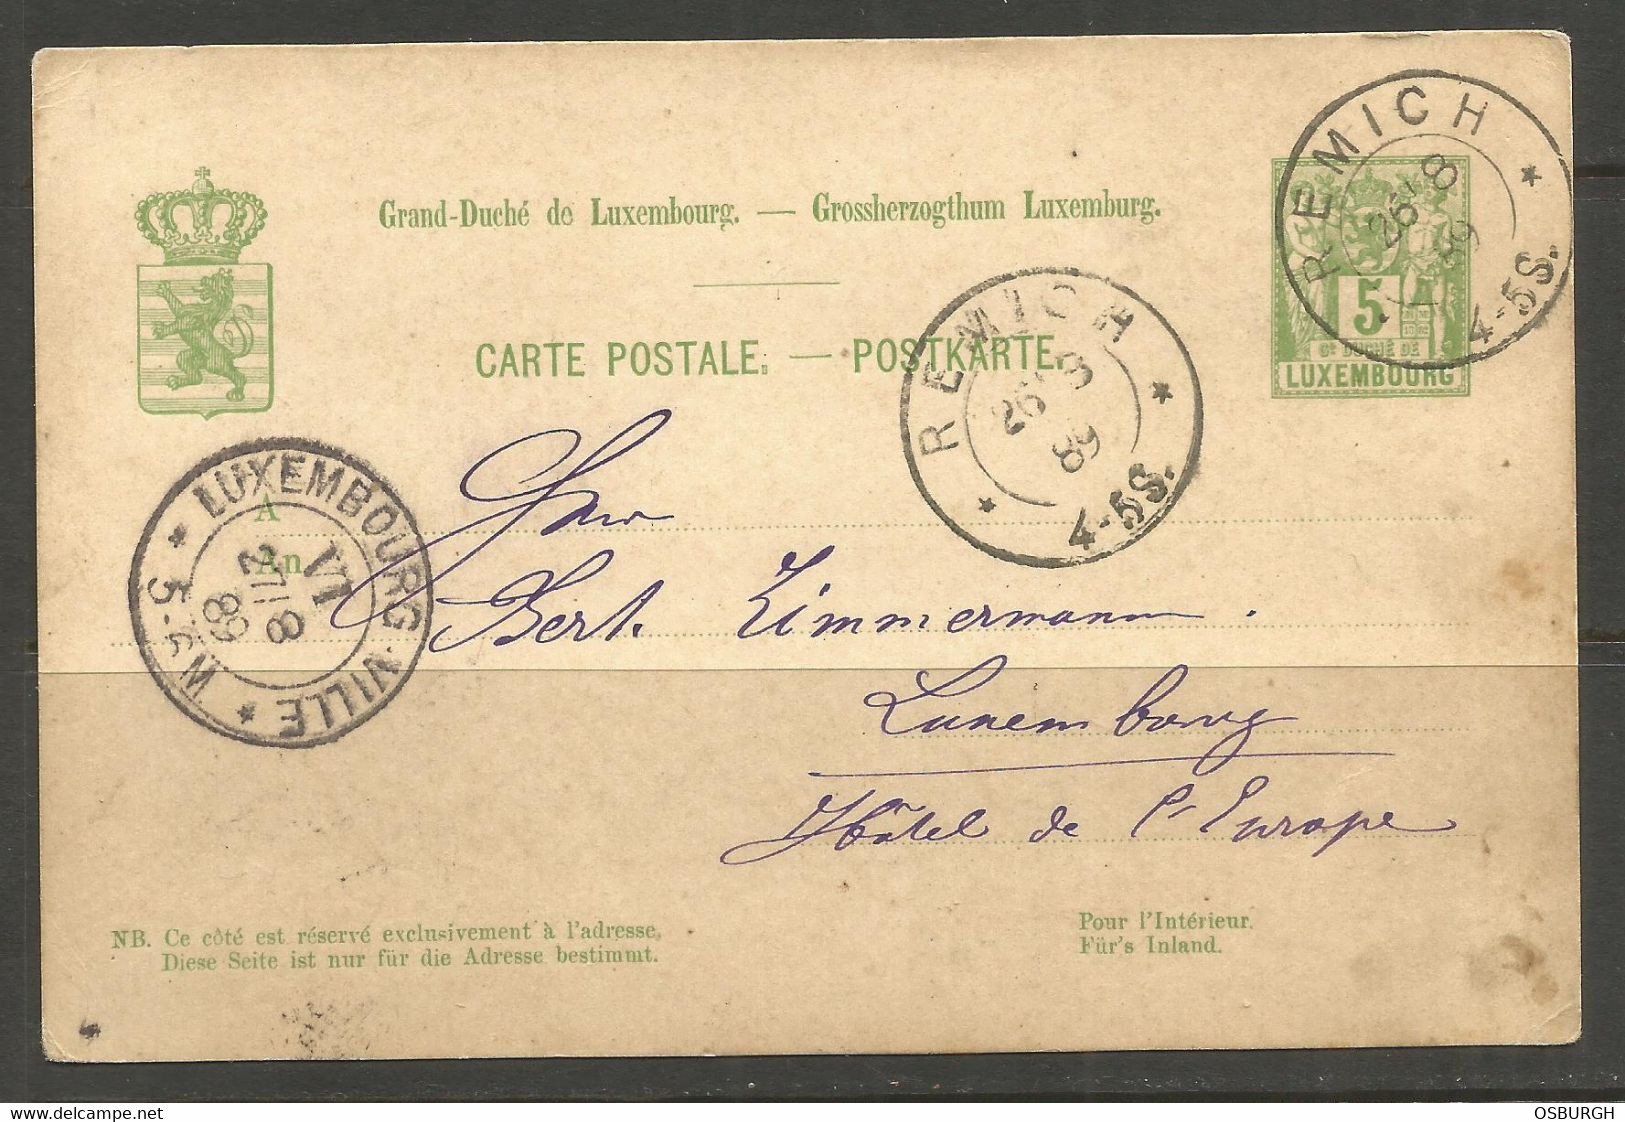 Grand-Duché de Luxembourg. — Grossherzogthum Luxemburg.
CARTE POSTALE. — POSTKARTE.
REMICH
26 8
89
4-5S.
5
Gd DUCHÉ DE
LUXEMBOURG
REMICH
26 8
89
4-5S.
LUXEMBOURG-VILLE
VI
27 8
89
A
An
Bert. Zimmermann.
Luxembourg
Hôtel de l'Europe
NB. Ce côté est réservé exclusivement à l'adresse.
Diese Seite ist nur für die Adresse bestimmt.
Pour l'Intérieur.
Für's Inland.
delcampe.net
OSBURGH